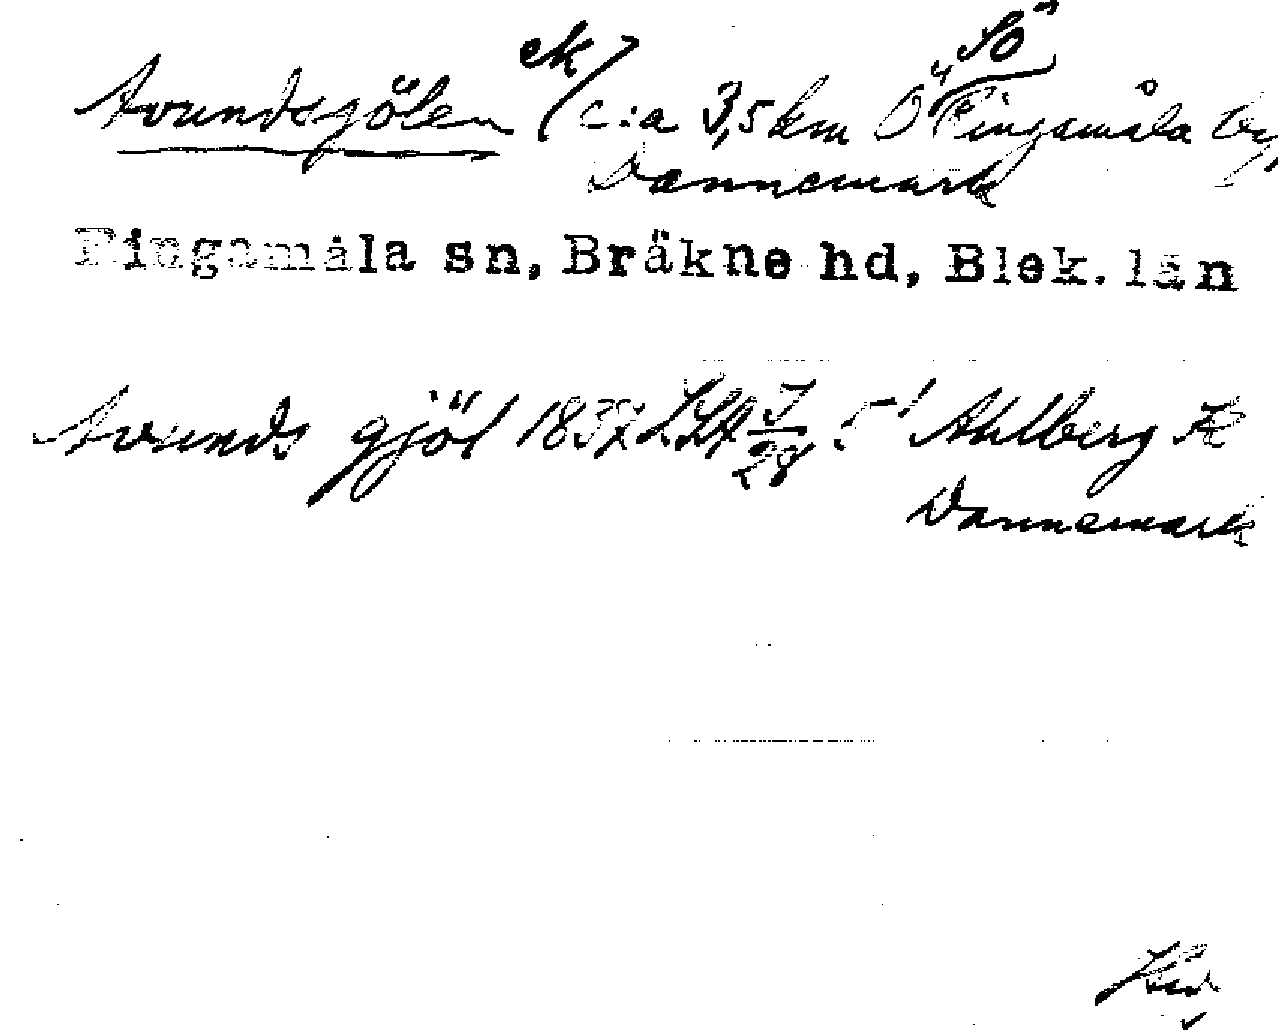 Avundsgölen ek/ c:a 3,5 km Ö SÖ Ringamåla by,
Dannemark
Ringamåla sn, Bräkne hd, Blek. län
Avunds gjöl 1837 LSA J/28 5' Ahlberg K
Dannemark